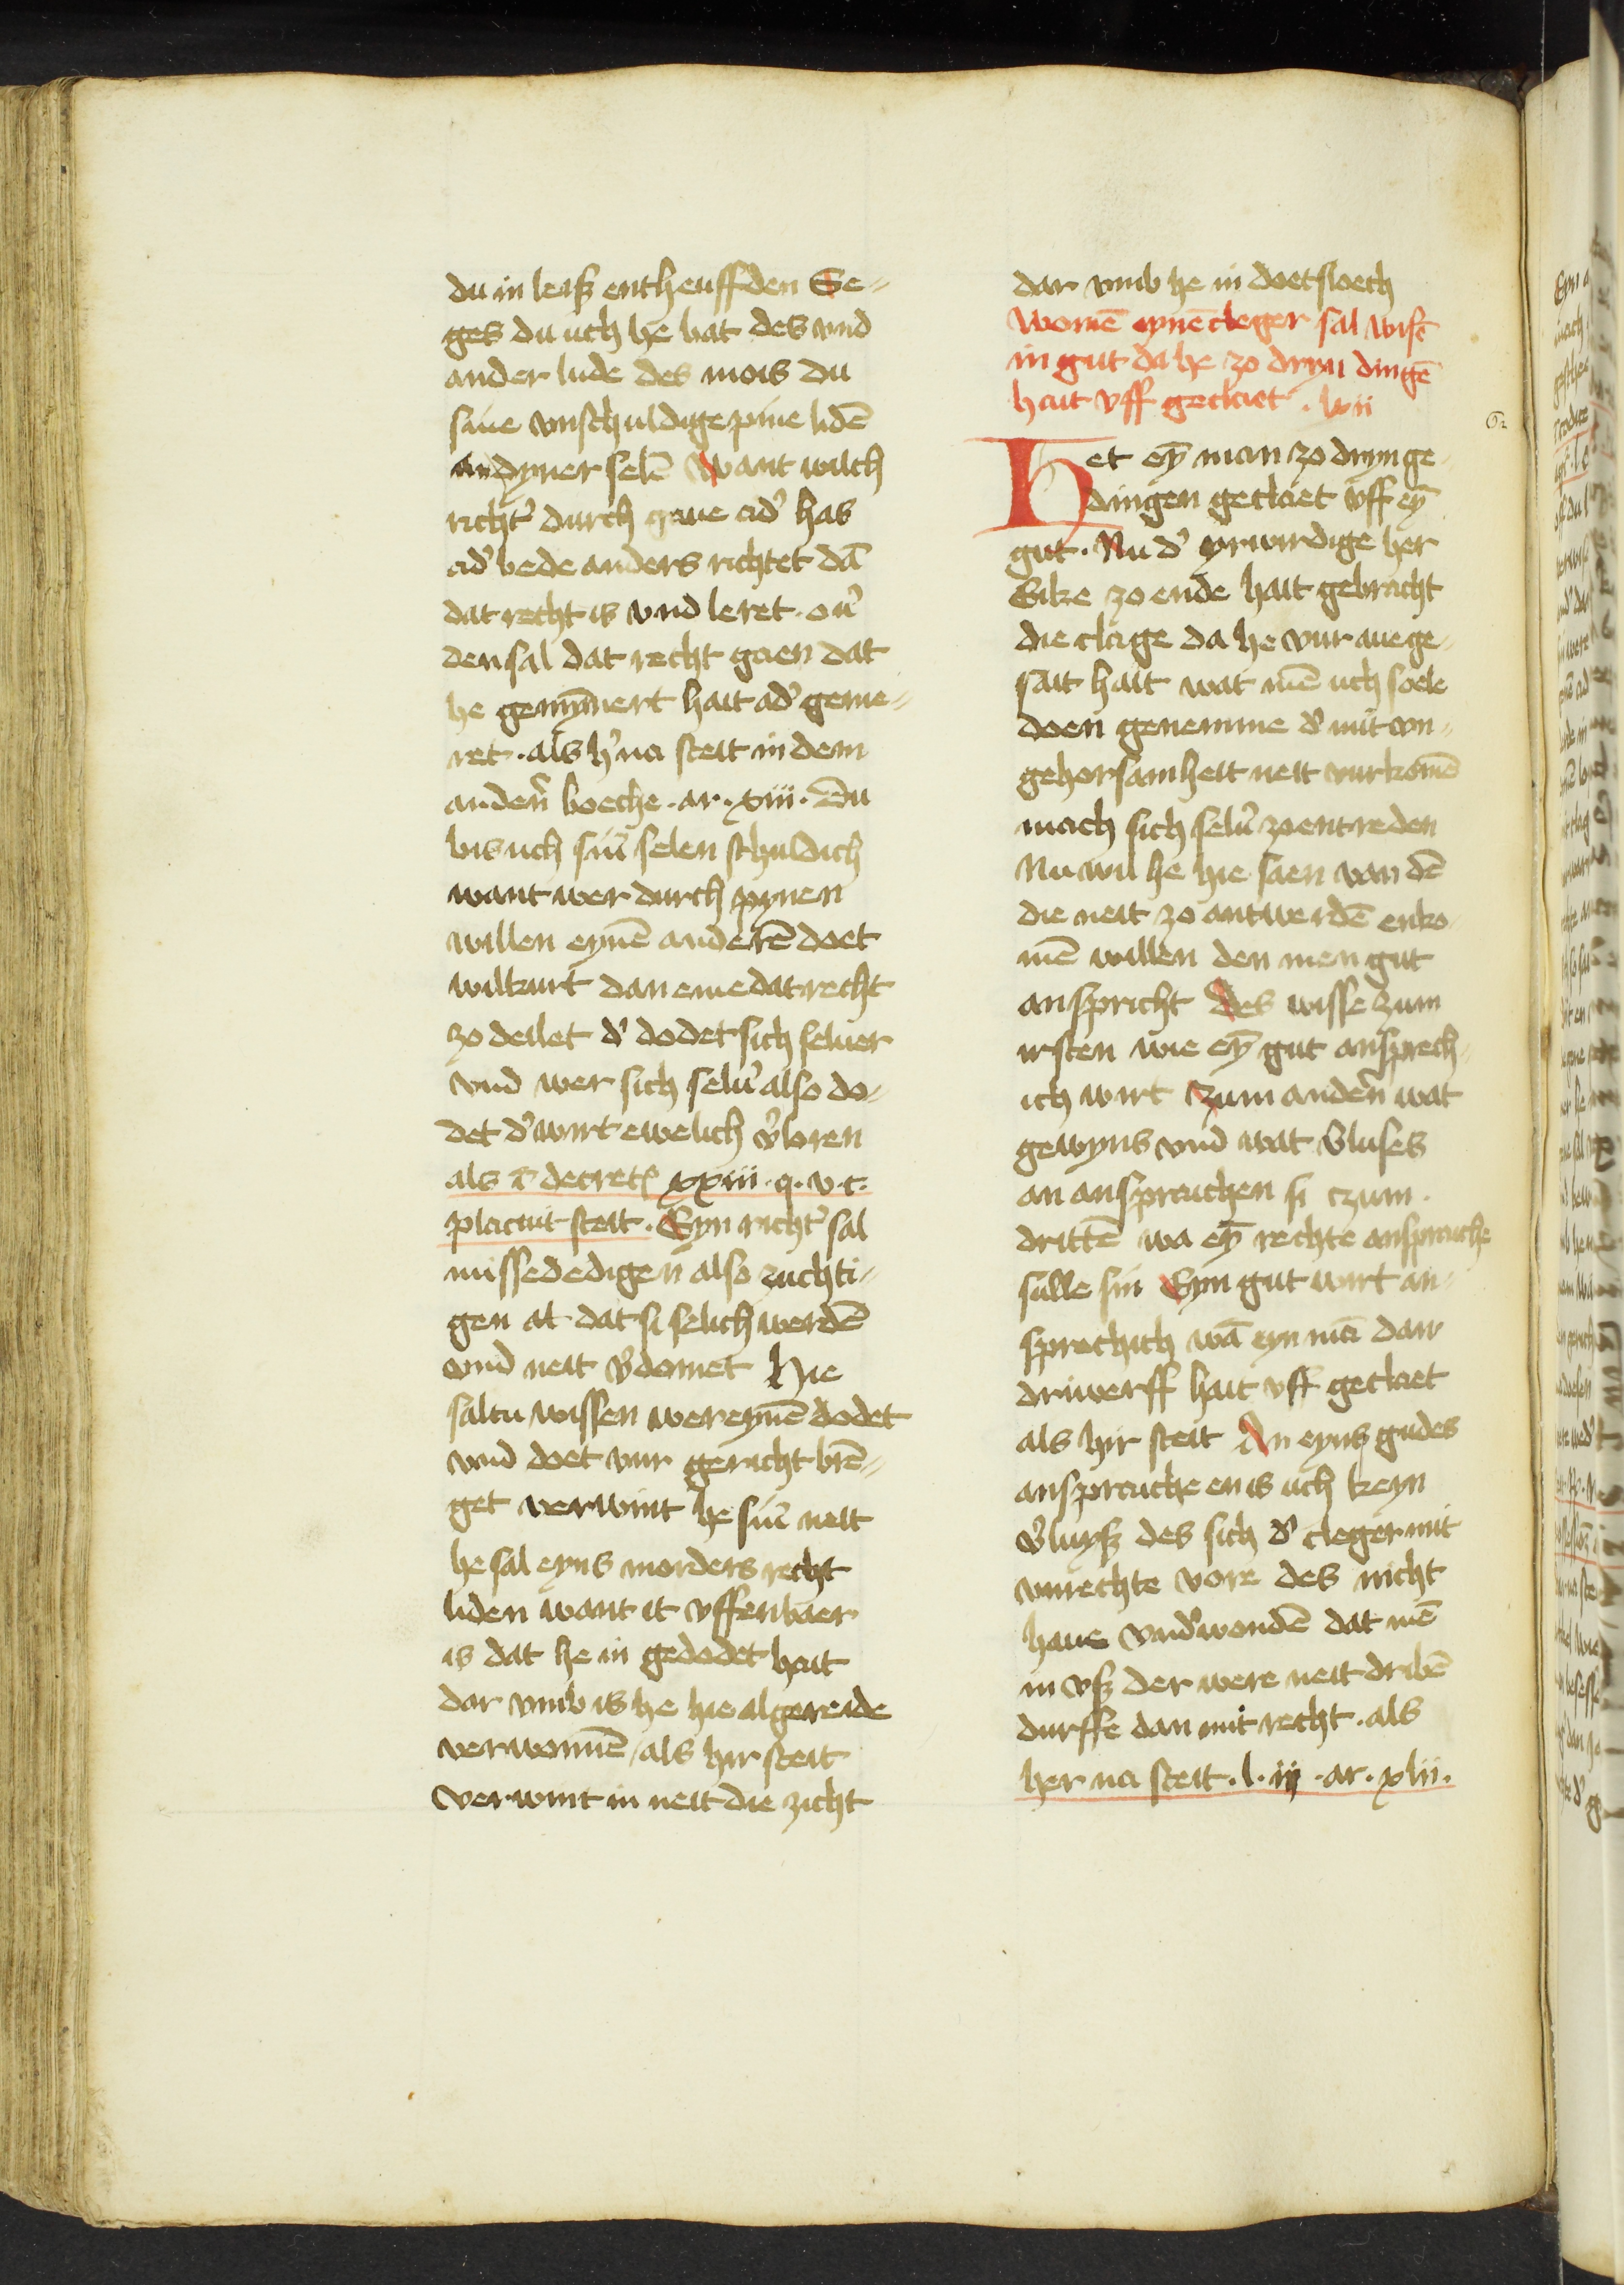 du in leiß entheuffden Se-
ges du uch he bat des vnd
ander lude des mois du
sine vnschuldige pine lidē
an dyner selē want wilch
richt' durch gaue ad' has
ad' bede anders richtet dā
dat recht is vnd leret ou'
den sal dat recht gaen dat
he gemȳnert hait ad' geme-
ret · als h'na steit in dem
anden' boeche · ar · xiii · Du
bis uch sin' selen schuldich
want wer durch pynen
willen eymē anderē doet
willkurt dan eme dat recht
zo dellet d' dodet sich seluer
vnd wer sich selu' also do-
det d' wirt ewelich v'loren
als ī decret' xxiii · q · v · c ·
placuit steit · Eyn richt' sal
missededigen also zuchti-
gen al dat si selich werdē
vnd neit v'domet Hie
saltu wissen wer eymē dodet
vnd doet vur gericht brē-
get verwint he sin' neit
he sal eyns morders recht
liden want it vffenbaer
is dat he in gedodet hait
dar vmb is he hie algereide
verwonnē als hir steit
verwint in neit die zicht
dar vmb he in doetsloech
Womē eynē cleger sal wisē
in gut da he zo dryn dingē
hait vff geclaet · lxii
Het eȳ man zo dryn ge-
dingen geclaet vff eȳ
gut · Nu d' yrwirdige her
Eike zo ende hait gebracht
die clage da he vur aue ge-
sait hait wat mē uch soele
doen genemme d' mit vn-
gehorsamheit neit vurkomē
mach sich selu' zo entreden
Nu wil he hie saen van dē
die neit zo antwerdē enko-
mē willen den men gut
anspricht Des wisse zum
irsten wie eȳ gut ansprech-
ich wirt Zum anden' wat
gewyns vnd wat v'luses
an anspraichen si czum
drittē wa eȳ rechte anspraiche
sulle sin Eyn gut wirt an-
sprechich wā eyn mā dar
driwerff hait vff geclaet
als hir steit An eyns gudes
anspraiche en is uch keyn
v'luyß des sich d' cleger mit
vnrechte vore des nicht
haue vnd'wondē dat mē
in vß der were neit dribē
durffe dan mit recht · als
her na steit · l · iij · ar · xlii ·